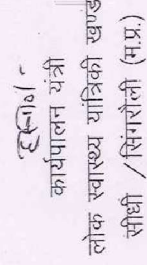 हस्ता०/-
कार्यपालन यंत्री
लोक स्वास्थ्य यांत्रिकी खण्ड
सीधी /सिंगरौली (म.प्र.)